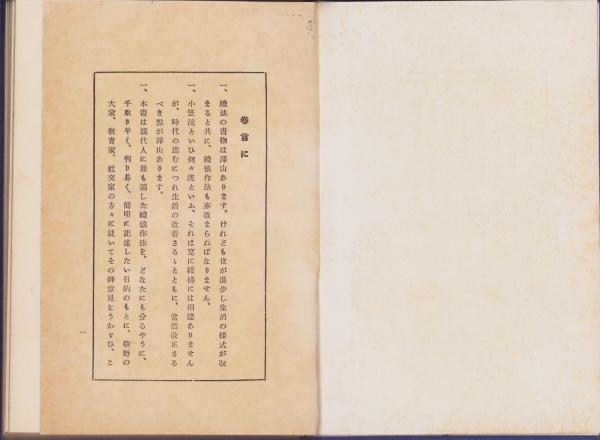 卷首に
一、禮法の書物は澤山あります。けれども世が進步し生活の樣式が改
まると共に、禮儀作法も亦改まらねばなりません。
一、小笠流といひ何々流といふ、それは寔に結構には相違ありません
が、時代の進むにつれ生活の改善さるゝとともに、當然改正さる
べき點が澤山あります。
一、本書は現代人に最も適した禮儀作法を、どなたにも分るやうに、
手取り早く、判り易く、簡明に記述したい目的のもとに、朝野の
大家、敎育家、社交家の方々に就いてその御意見をうかゞひ、こ
一